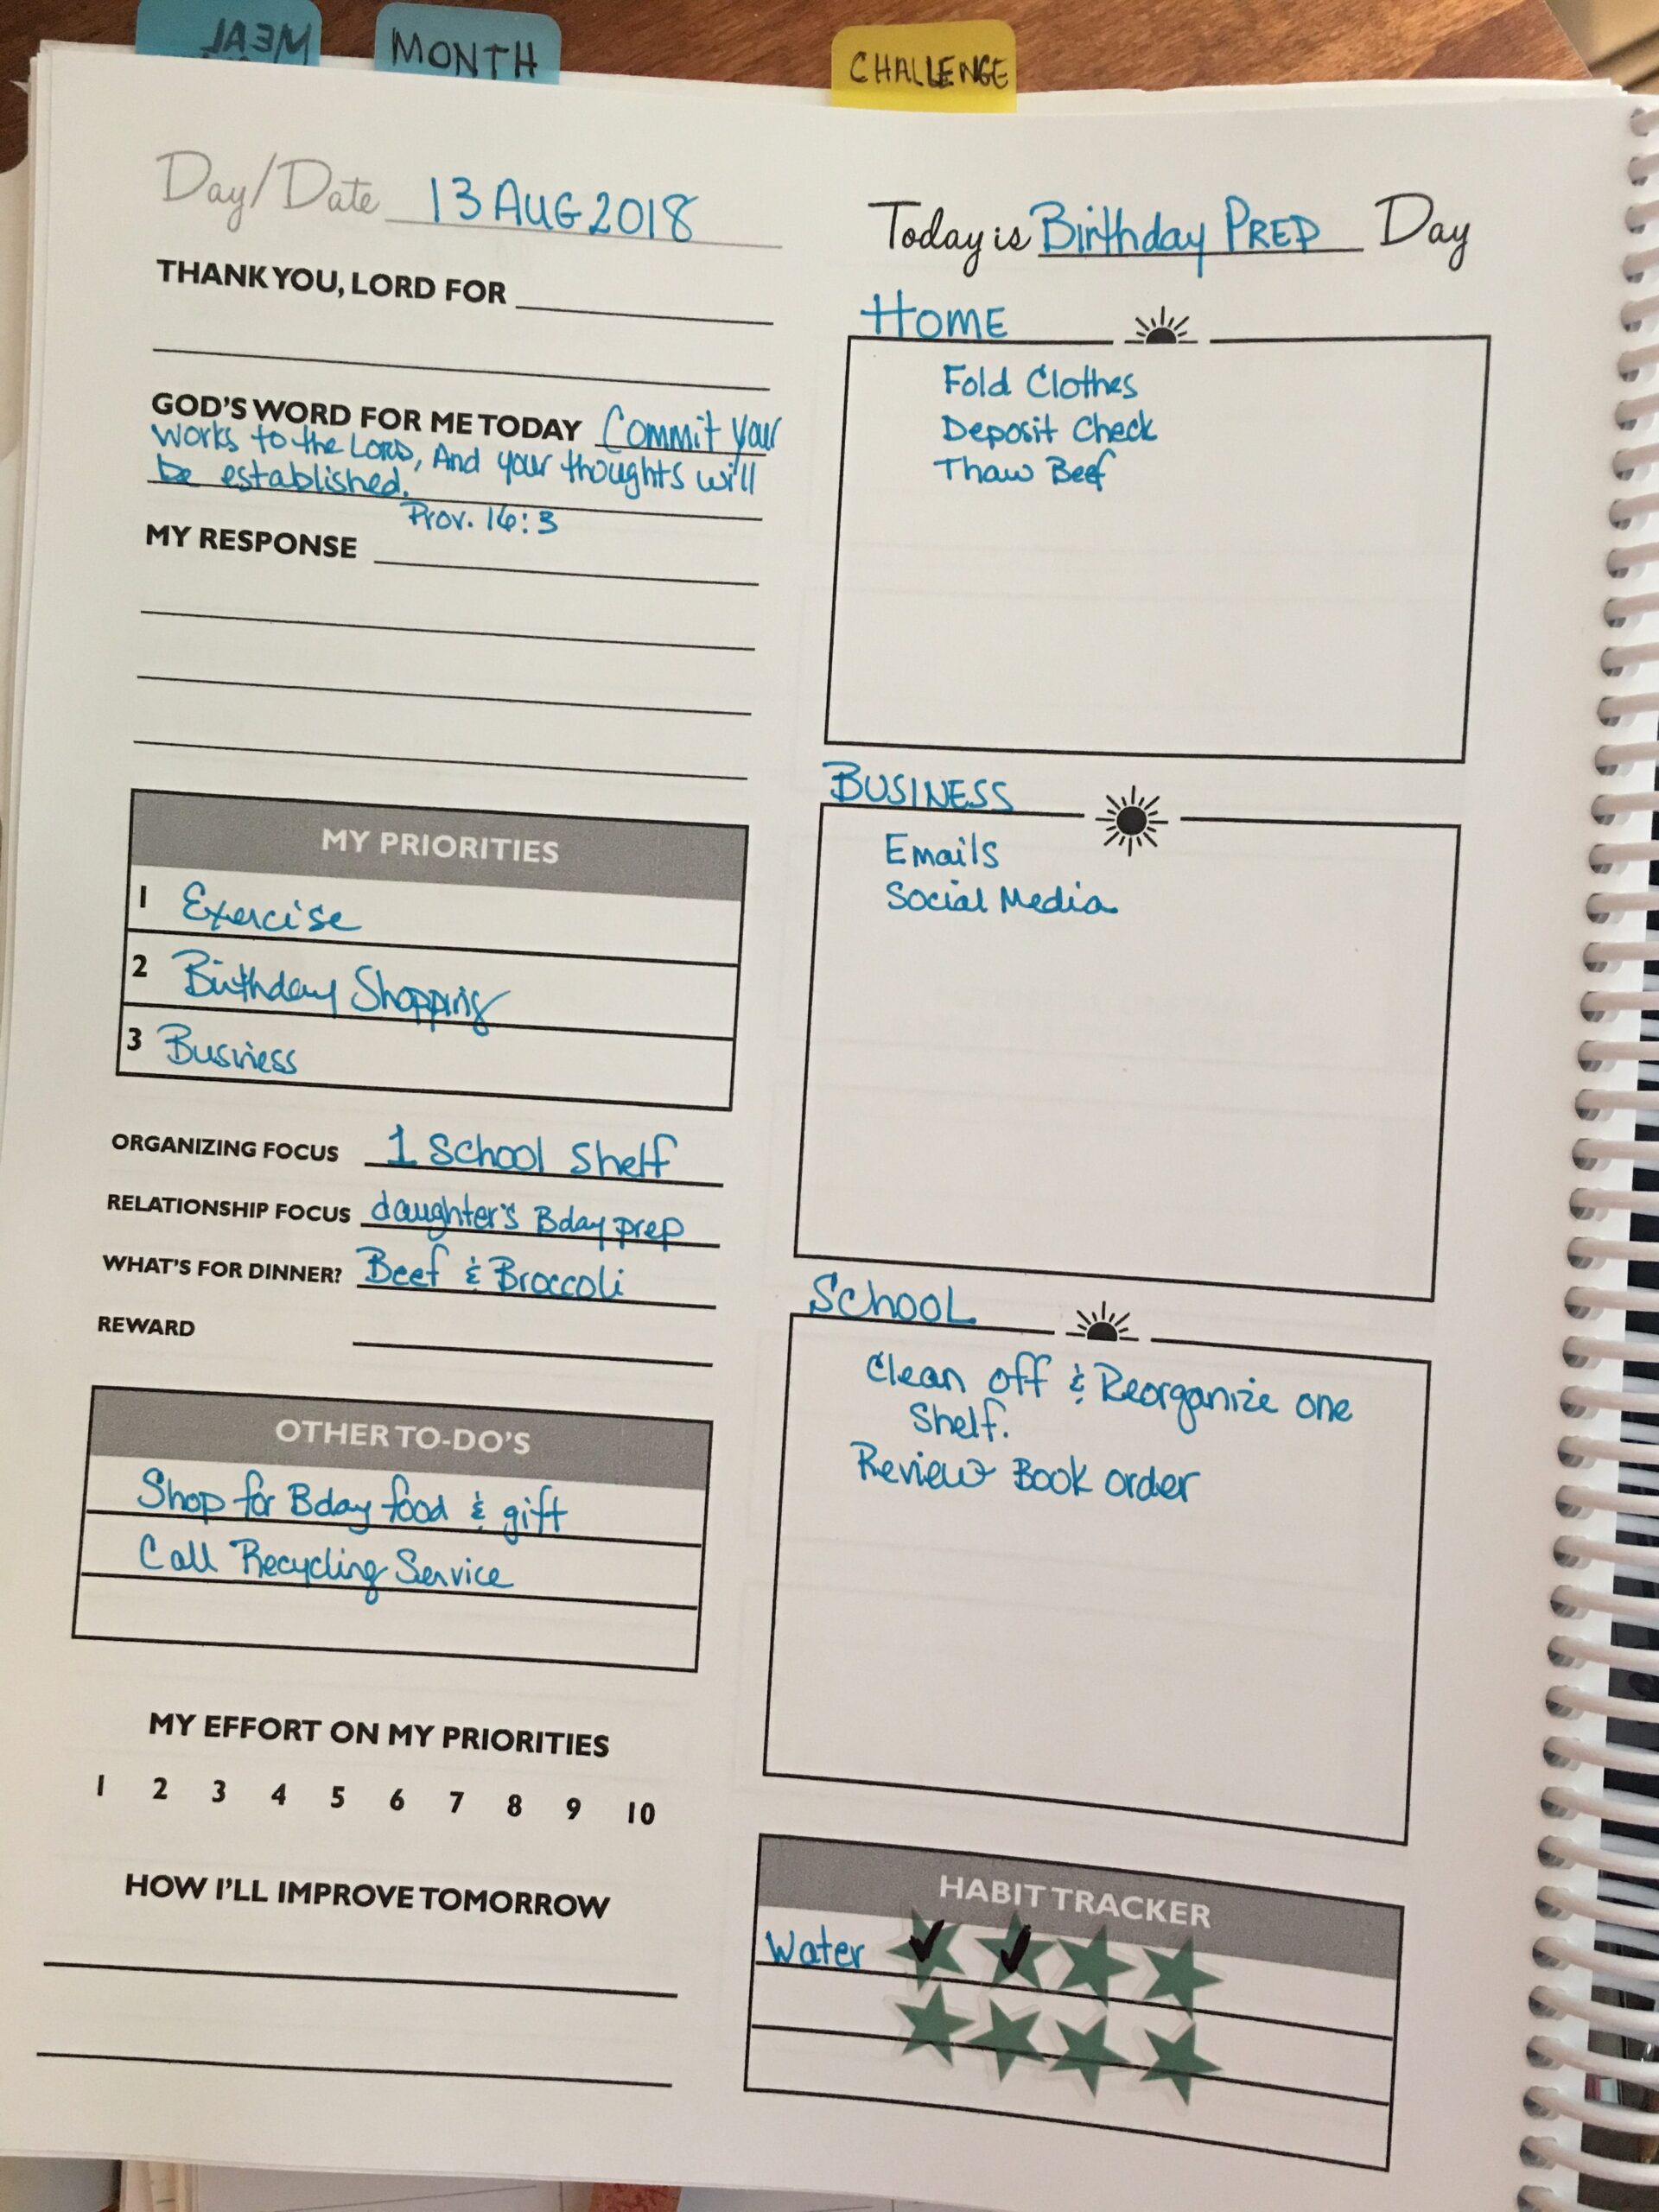 MEAL
MONTH
CHALLENGE
Day/Date 13 AUG 2018
THANK YOU, LORD FOR
GOD'S WORD FOR ME TODAY Commit your
works to the LORD, And your thoughts will
be established.
Prov. 16:3
MY RESPONSE
MY PRIORITIES
1 Exercise
2 Birthday Shopping
3 Business
ORGANIZING FOCUS 1 School Shelf
RELATIONSHIP FOCUS daughter's Bday prep
WHAT'S FOR DINNER? Beef & Broccoli
REWARD
OTHER TO-DO'S
Shop for Bday food & gift
Call Recycling Service
MY EFFORT ON MY PRIORITIES
1 2 3 4 5 6 7 8 9 10
HOW I'LL IMPROVE TOMORROW
Today is Birthday PREP Day
HOME
Fold Clothes
Deposit Check
Thaw Beef
BUSINESS
Emails
Social Media
SCHOOL
Clean off & Reorganize one
Shelf.
Review Book order
HABIT TRACKER
Water